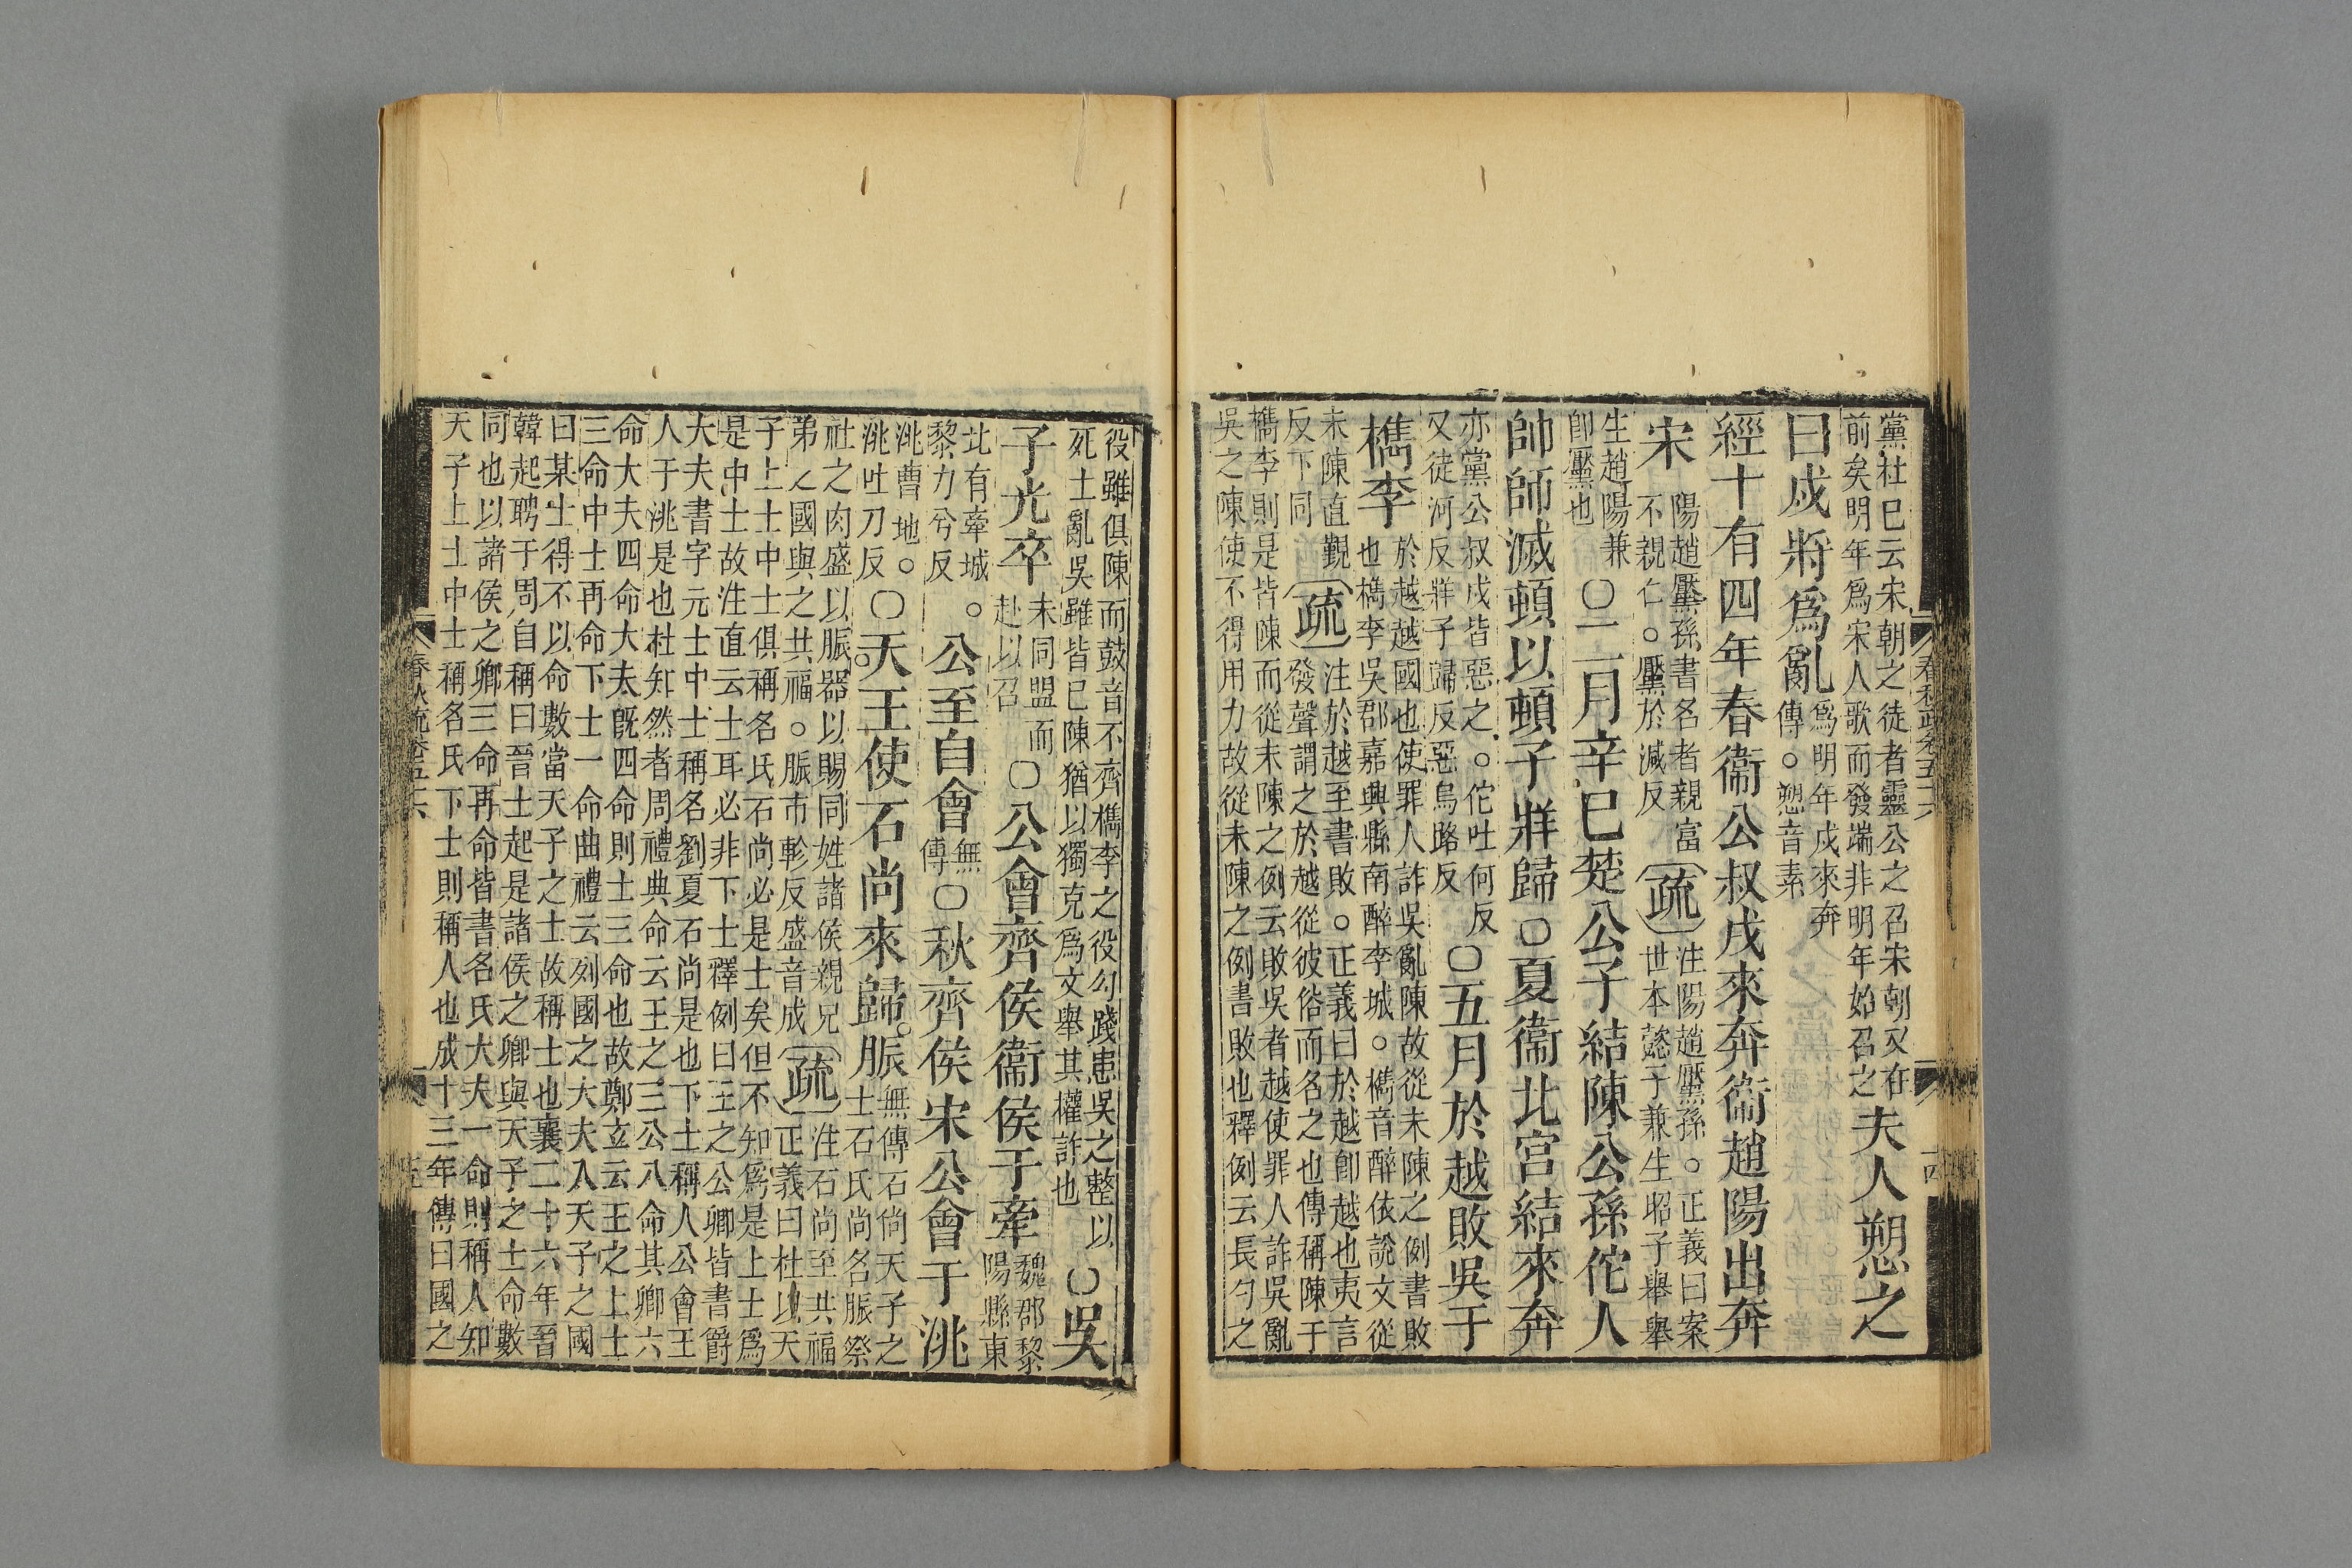 黨杜巳云宋朝之徒者靈公之召宋朝又在
前矣明年爲宋人歌而發端非明年始召之
夫人愬之
曰戍將爲亂
爲明年戍來奔
傳○愬音素
經十有四年春衞公叔戍來奔衞趙陽出奔
宋
陽趙黶孫書名者親富
不親仁○黶於減反
疏
注陽趙黶孫○正義曰案
世本懿子兼生昭子舉舉
生趙陽兼
卽黶也
○二月辛巳楚公子結陳公孫佗人
帥師滅頓以頓子牂歸○夏衞北宮結來奔
亦黨公叔戍皆惡之○佗吐何反
又徒河反牂子郎反惡烏路反
○五月於越敗吳于
檇李
於越越國也使罪人詐吳亂陳故從未陳之例書敗
也檇李吳郡嘉興縣南醉李城○檇音醉依說文從
未陳直覲
反下同
疏
注於越至書敗○正義曰於越卽越也夷言
發聲謂之於越從彼俗而名之也傳稱陳于
檇李則是皆陳而從未陳之例云敗吳者越使罪人詐吳亂
吳之陳使不得用力故從未陳之例書敗也釋例云長勺之
春秋疏卷五十六
十四
役雖俱陳而鼓音不齊檇李之役勾踐患吳之整以
死士亂吳雖皆巳陳猶以獨克爲文舉其權詐也
○吳
子光卒
未同盟而
赴以召
○公會齊侯衞侯于牽
魏郡黎
陽縣東
北有牽城○
黎力兮反
公至自會
無
傳
○秋齊侯宋公會于洮
洮曹地○
洮吐刀反
○天王使石尚來歸脤
無傳石尚天子之
士石氏尚名脤祭
社之肉盛以脤器以賜同姓諸侯親兄
弟之國與之共福○脤市軫反盛音成
疏
注石尚至共福
正義曰杜以天
子上士中士俱稱名氏石尚必是士矣但不知爲是上士爲
是中士故注直云士耳必非下士釋例曰王之公卿皆書爵
大夫書字元士中士稱名劉夏石尚是也下士稱人公會王
人于洮是也杜知然者周禮典命云王之三公八命其卿六
命大夫四命大夫旣四命則士三命也故鄭玄云王之上士
三命中士再命下士一命曲禮云列國之大夫入天子之國
曰某士得不以命數當天子之士故稱士也襄二十六年晉
韓起聘于周自稱曰晉士起是諸侯之卿與天子之士命數
同也以諸侯之卿三命再命皆書名氏大夫一命則稱人知
天子上士中士稱名氏下士則稱人也成十三年傳曰國之
春秋疏卷五十六